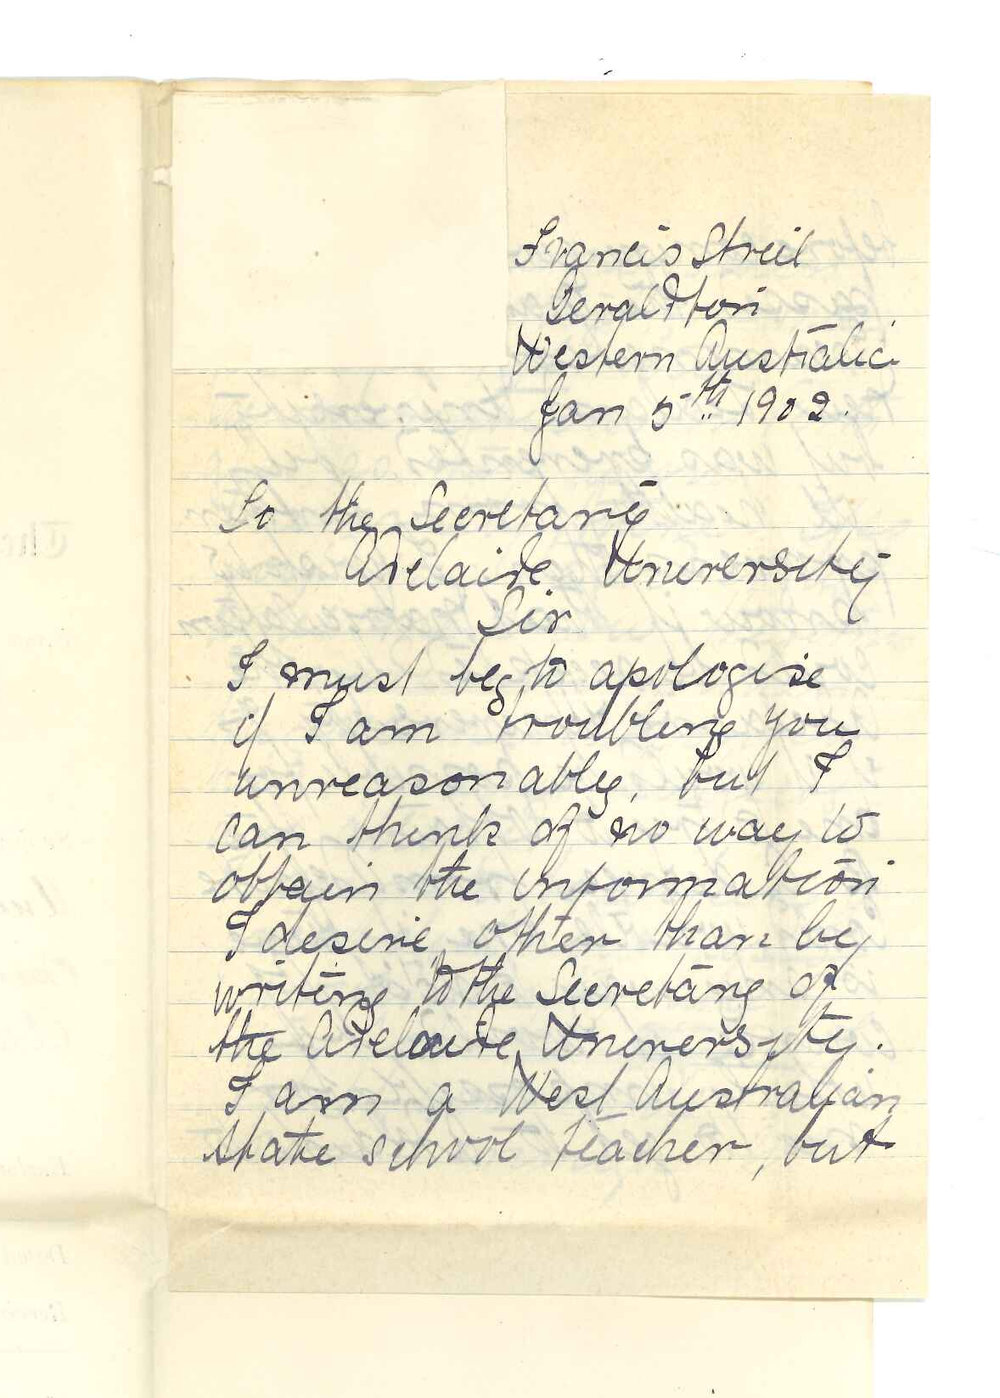 Francis Street
Geraldton
Western Australia
Jan 5th 1902.
To the Secretary
Adelaide University
Sir
I must beg to apologise
if I am troubling you
unreasonably, but I
can think of no way to
obtain the information
I desire, other than by
writing to the Secretary of
the Adelaide University.
I am a West Australian
state school teacher, but